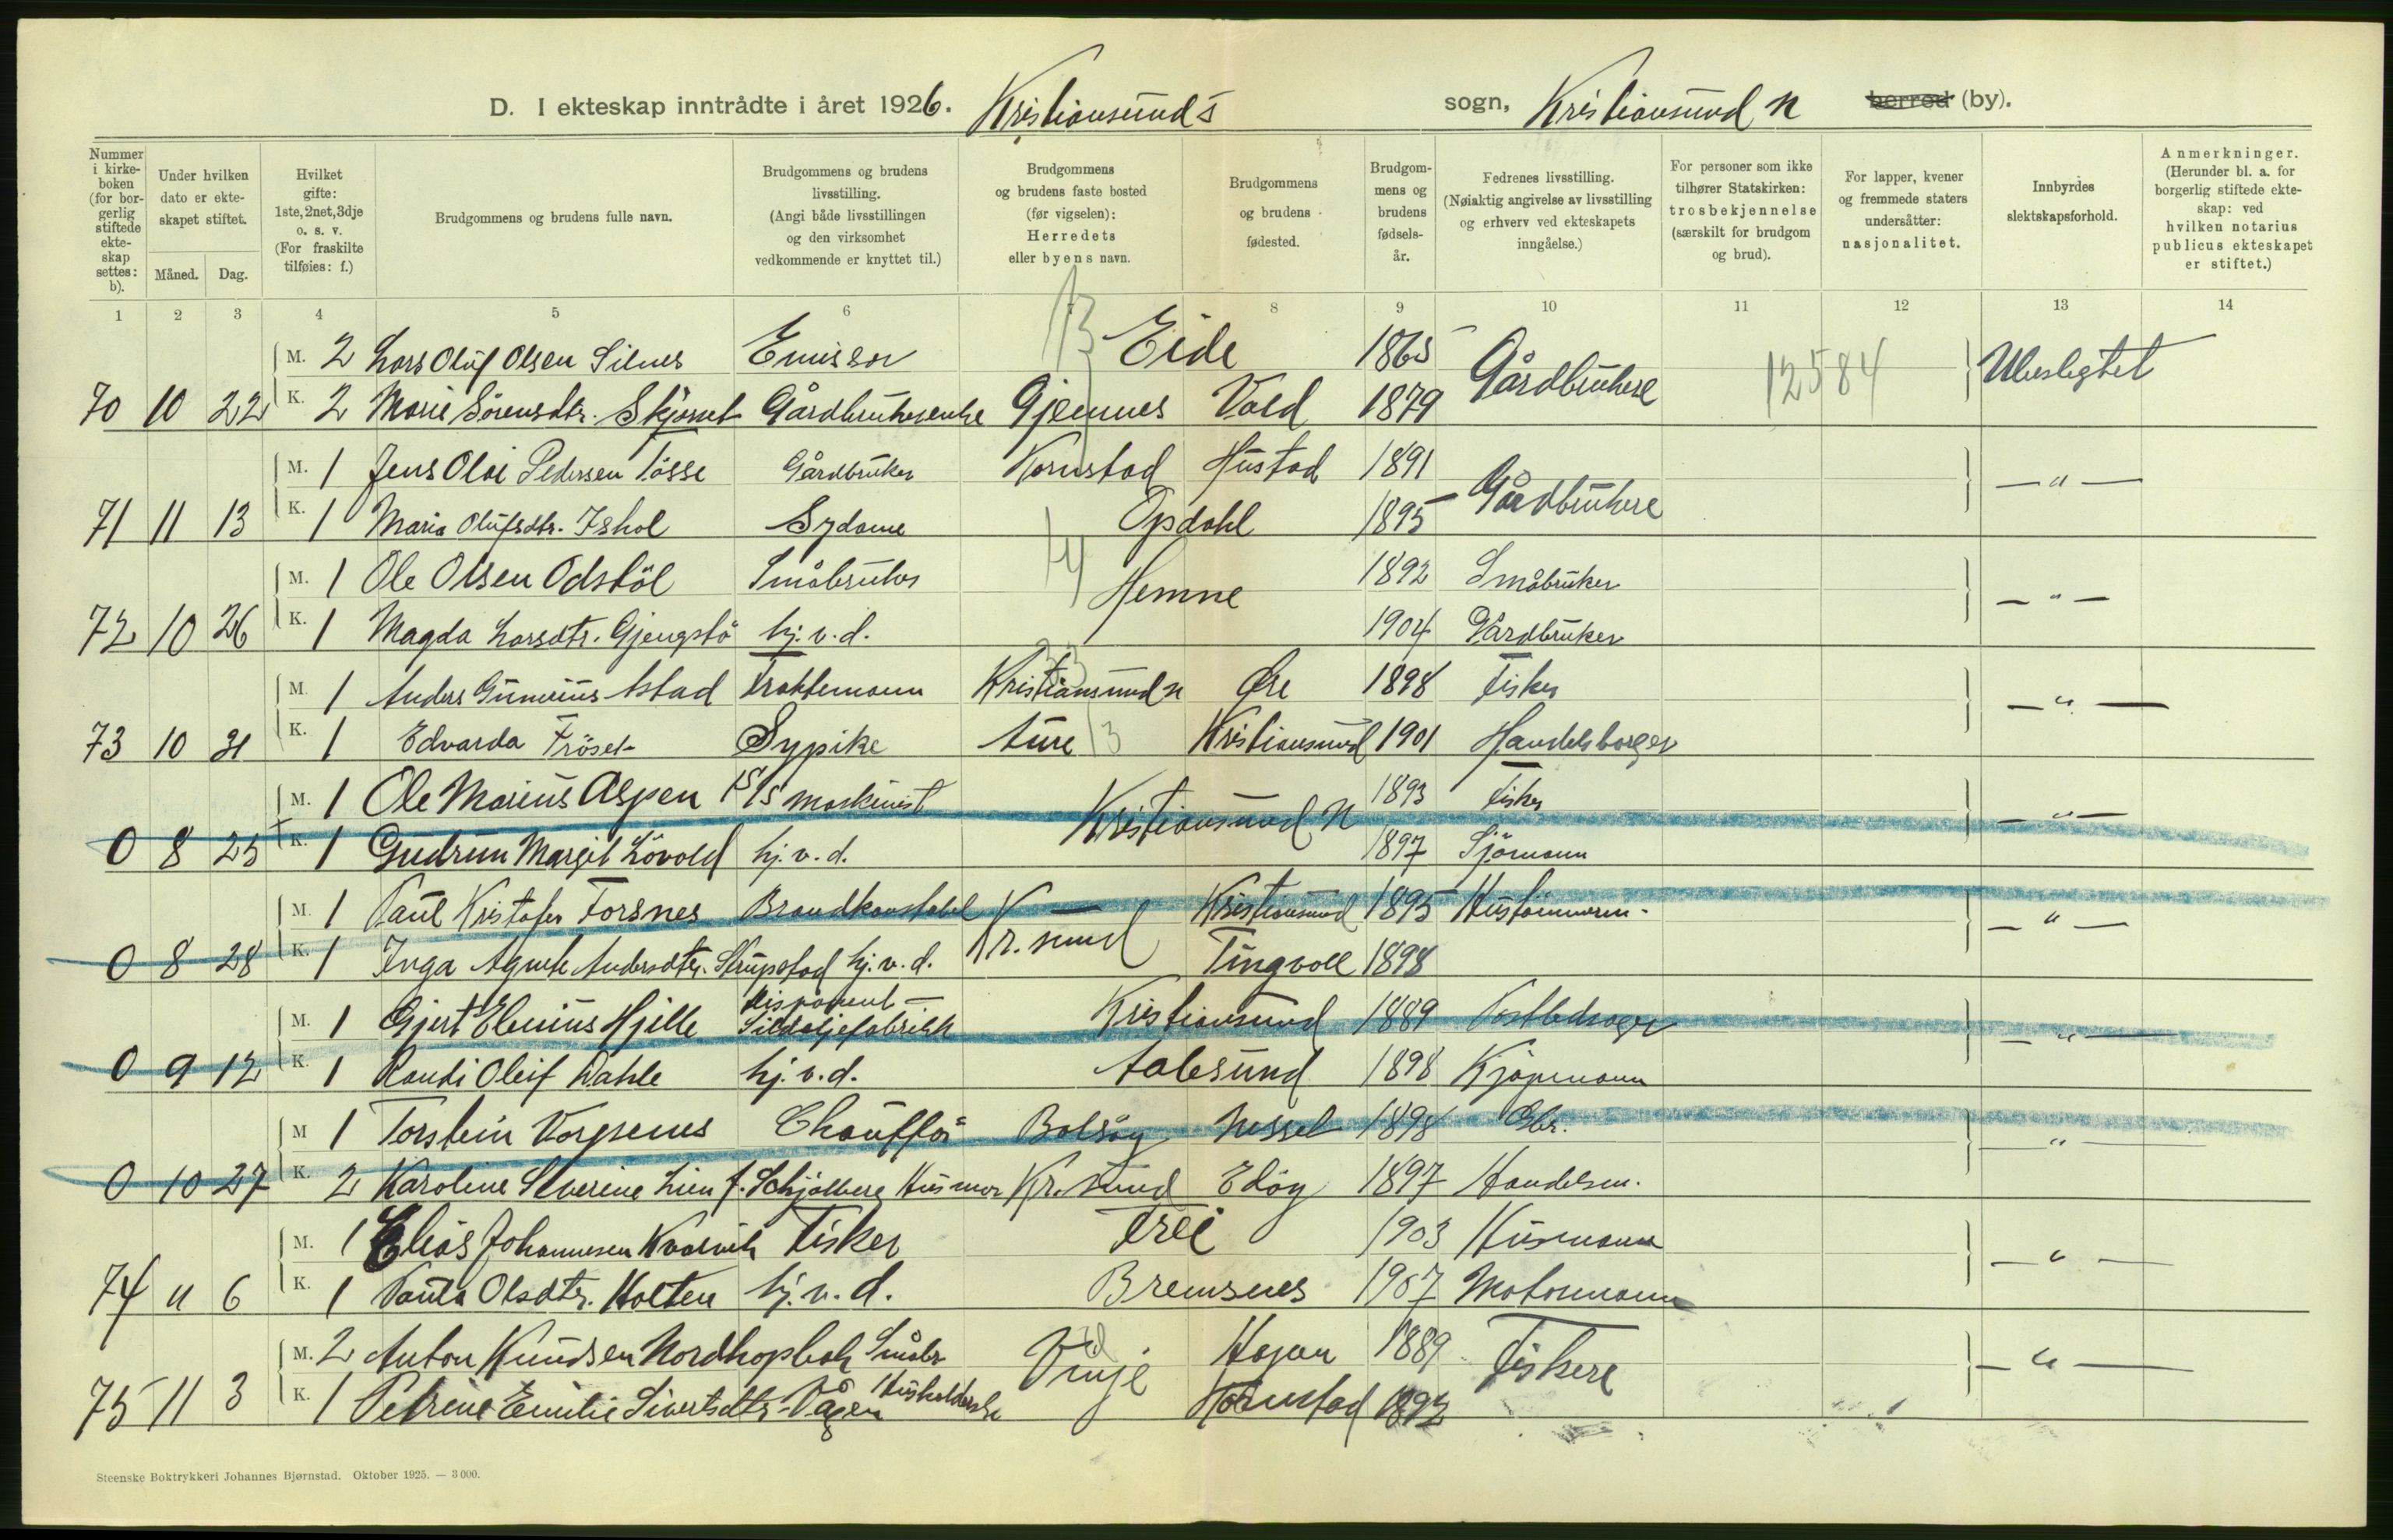 D. I ekteskap inntrådte i året 1926. Kristiansunds sogn, Kristiansund N herred (by).
Nummer i kirkeboken (for borgerlig stiftede ekteskap settes: b).
Under hvilken dato er ekteskapet stiftet.
Måned. Dag.
Hvilket gifte: 1ste, 2net, 3dje o. s. v. (For fraskilte tilføies: f.)
Brudgommens og brudens fulle navn.
Brudgommens og brudens livsstilling. (Angi både livsstillingen og den virksomhet vedkommende er knyttet til.)
Brudgommens og brudens faste bosted (før vigselen): Herredets eller byens navn.
Brudgommens og brudens fødested.
Brudgommens og brudens fødselsår.
Fedrenes livsstilling. (Nøiaktig angivelse av livsstilling og erhverv ved ekteskapets inngåelse.)
For personer som ikke tilhører Statskirken: trosbekjennelse (særskilt for brudgom og brud).
For lapper, kvener og fremmede staters undersåtter: nasjonalitet.
Innbyrdes slektskapsforhold.
Anmerkninger. (Herunder bl. a. for borgerlig stiftede ekteskap: ved hvilken notarius publicus ekteskapet er stiftet.)
1 2 3 4 5 6 8 9 10 11 12 13 14
M. 2 Lars Oluf Olsen Silnes Emissær 13 Eide 1865 Gårdbrukere 12584 Ubeslegtet
70 10 22 K. 2 Marie Sørensdtr. Skjørset Gårdbrukerenke Gjemnes Vold 1879
M. 1 Jens Olai Pedersen Tøsse Gårdbruker Kornstad Hustad 1891 Gårdbrukere — " —
71 11 13 K. 1 Maria Olufsdtr. Ishol Sydame Opdahl 1895
M. 1 Ole Olsen Odstöl Småbruker Hemne 1892 Småbruker — " —
72 10 26 K. 1 Magda Larsdtr. Gjengstö hj. v. d. 1904 Gårdbruker
M. 1 Anders Gunerius Astad Fraktemann Kristiansund N Øre 1898 Fisker — " —
73 10 31 K. 1 Edvarda Fröset Sypike Aure 13 Kristiansund 1901 Handelsborger
M. 1 Ole Marius Aspen maskinist Kristiansund N 1893 Fisker — " —
0 8 25 K. 1 Gudrun Margit Lövold hj. v. d. 1897 Sjömann
M. 1 Paul Kristofer Forsnes Brandkonstabel K — Kristiansund 1895 — " —
0 8 28 K. 1 Inga Agnete Andersdtr. Strupstad hj. v. d. Kr. sund Tingvoll 1898
M. 1 Gjert Elenius Hjelle disponent — Sildoljefabrikk Kristiansund 1889 Postbedrager — " —
0 9 12 K. 1 Randi Oleif Dahle hj. v. d. Aalesund 1898 Kjöpmann
M 1 Torstein Vorpenes Chaufför Bolsöy Nesset 1898 Gbr. — " —
0 10 27 K. 2 Karoline Severine Lien f. Schjølberg Husmor Kr. sund Edöy 1897 Handelsm.
M. 1 Elias Johannesen Kvalvik Fisker Frei 1903 Husmann — " —
74 11 6 K. 1 Paula Olsdtr. Holten hj. v. d. Bremsnes 1907 Motormann
M. 2 Anton Knudsen Nordhopbak Småbr Vinje Hopen 1889 Fiskere — " —
75 11 3 K. 1 Petrine Emilie Sivertsdtr. Vågen Husholderske Kornstad 1892
Steenske Boktrykkeri Johannes Bjørnstad. Oktober 1925. — 3000.